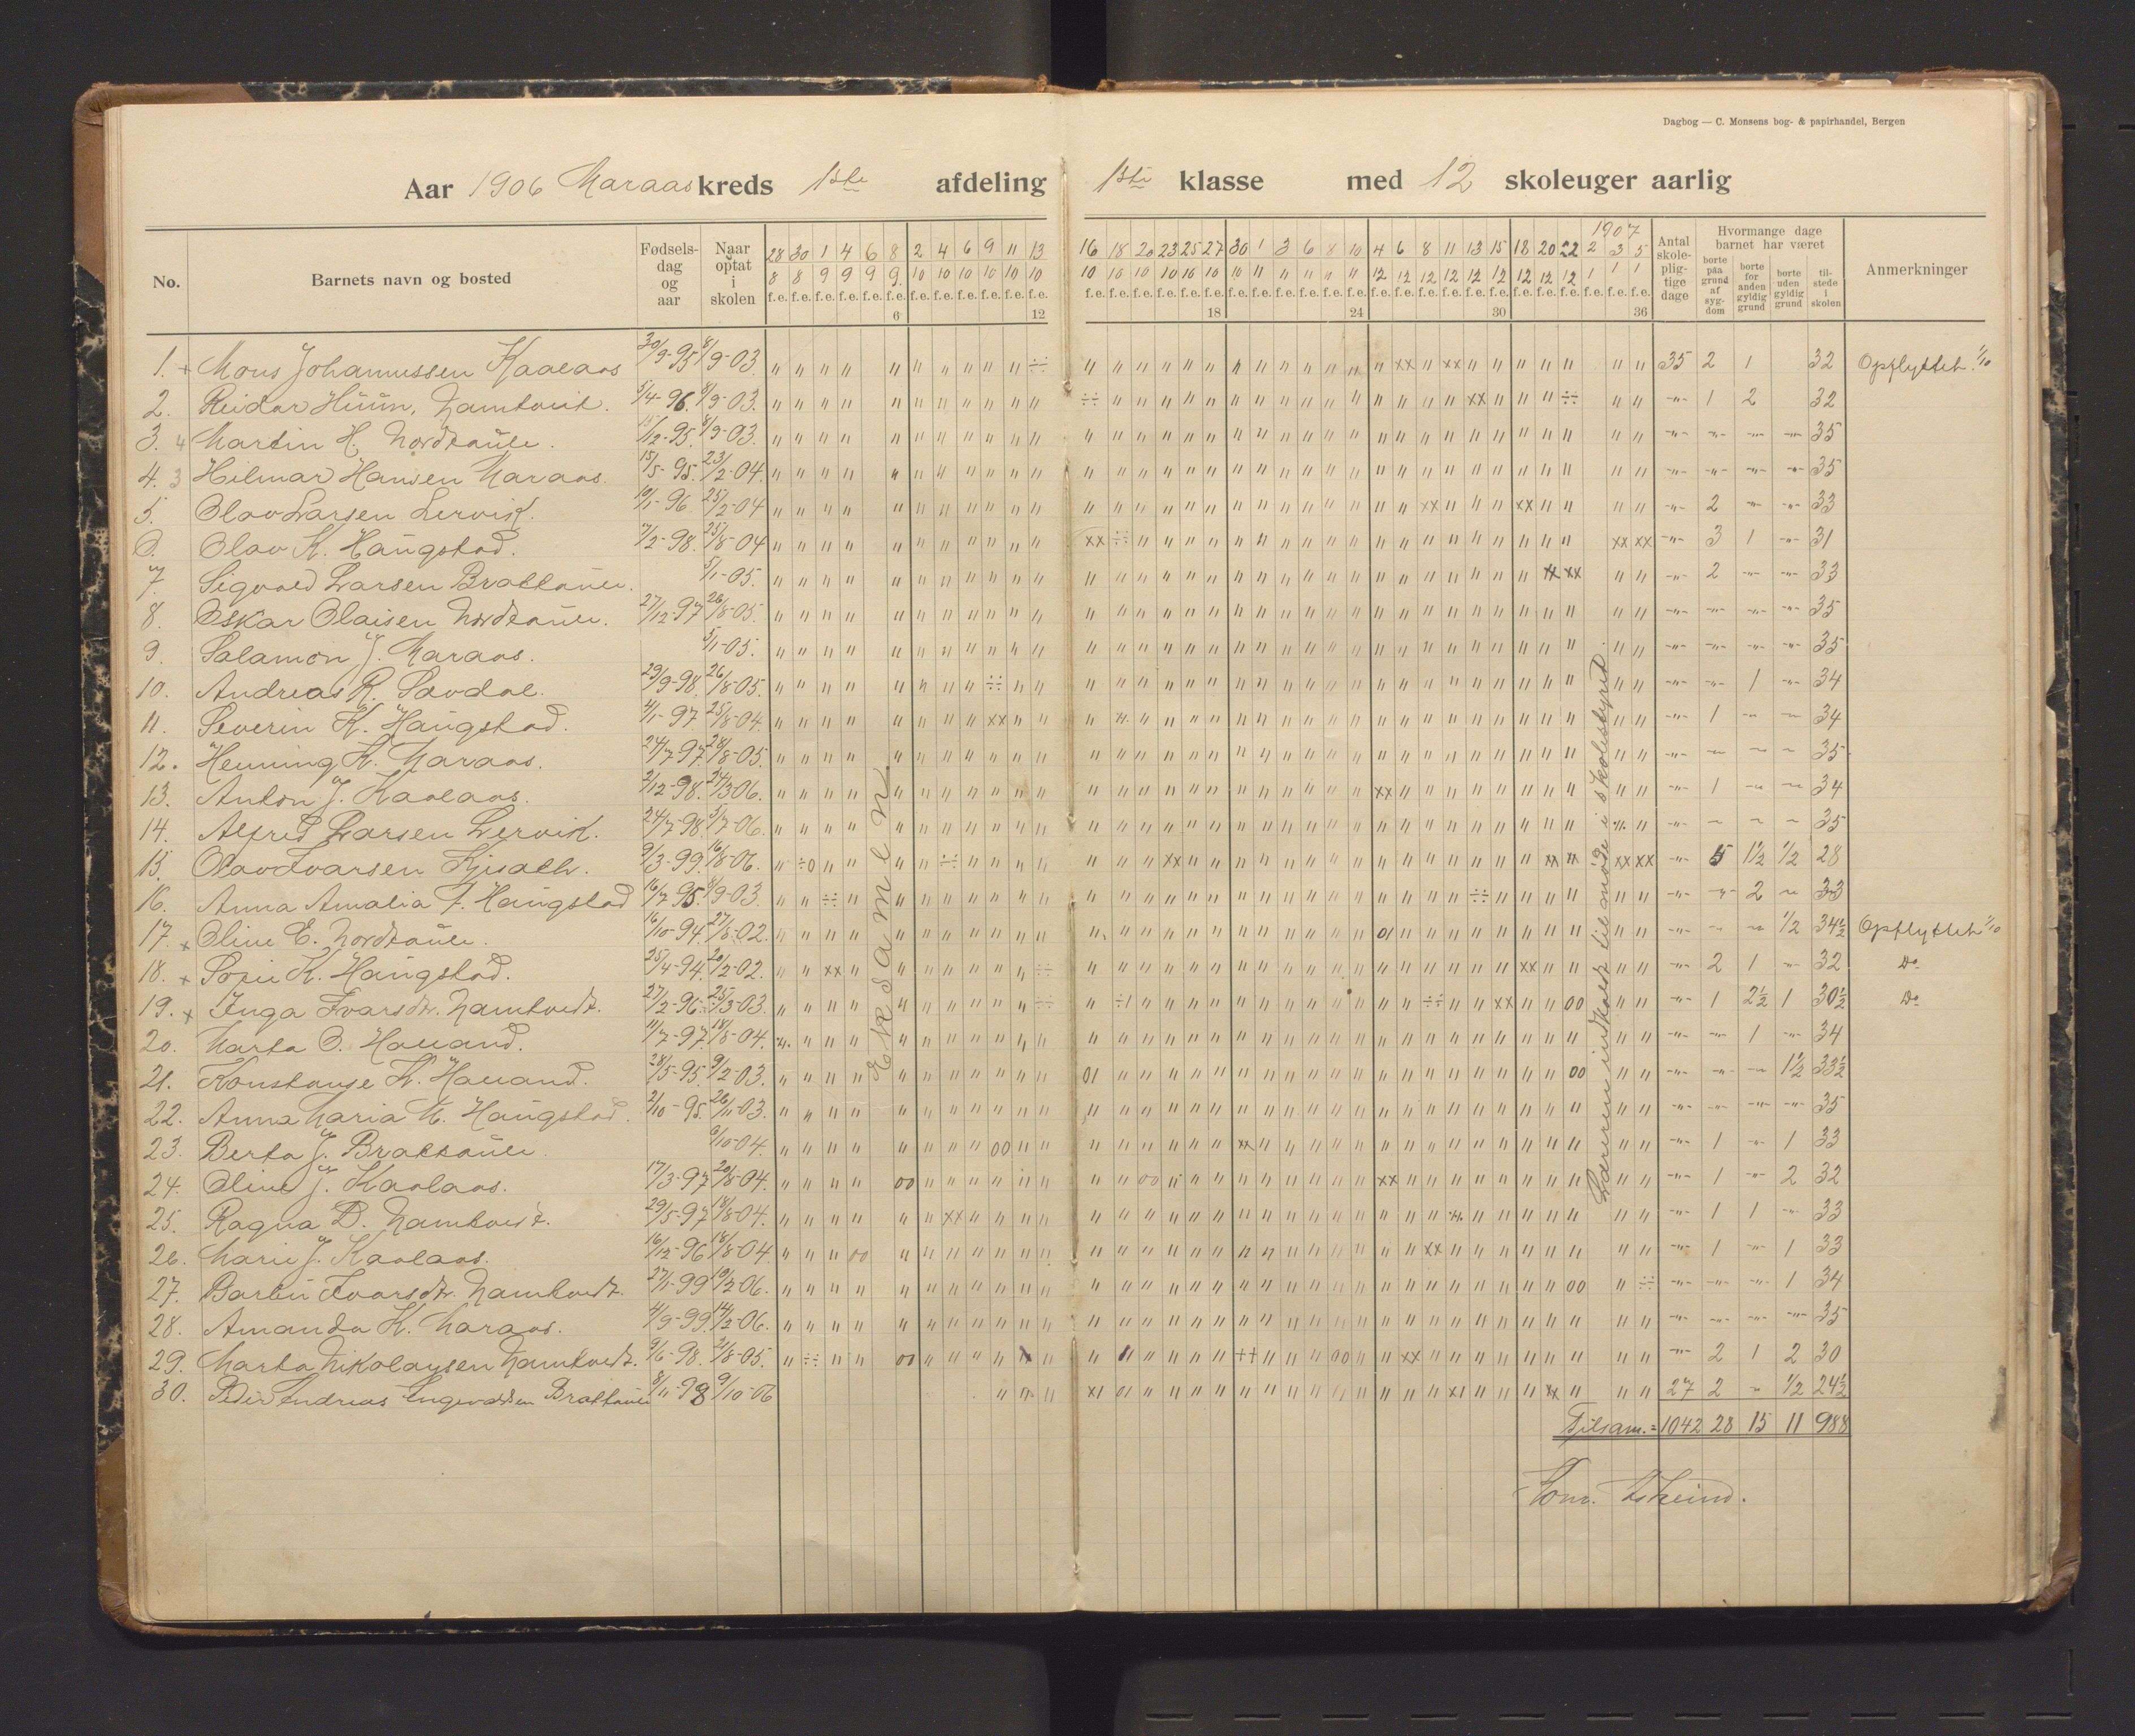 Dagbog — C. Monsens bog- & papirhandel, Bergen
Aar 1906 Maraas kreds 1ste afdeling 1ste klasse med 12 skoleuger aarlig
No. Barnets navn og bosted Fødsels-dag og aar Naar optat i skolen Antal skole-plig-tige dage Hvormange dage barnet har været Anmerkninger
borte paa grund af syg-dom borte for anden gyldig grund borte uden gyldig grund til-stede i skolen
1907
28 30 1 4 6 8 2 4 6 9 11 13 16 18 20 23 25 27 30 1 3 6 8 10 4 6 8 11 13 15 18 20 22 2 3 5
8 8 9 9 9 9. 10 10 10 10 10 10 10 10 10 10 10 10 10 11 11 11 11 11 12 12 12 12 12 12 12 12 12 1 1 1
f.e. f.e. f.e. f.e. f.e. f.e. f.e. f.e. f.e. f.e. f.e. f.e. f.e. f.e. f.e. f.e. f.e. f.e. f.e. f.e. f.e. f.e. f.e. f.e. f.e. f.e. f.e. f.e. f.e. f.e. f.e. f.e. f.e. f.e. f.e. f.e.
6 12 18 24 30 36
1. + Mons Johannussen Kaalaas 30/9-95 8/9-03. 35 2 1 32 Opflyttet 1/10
2. Reidar Huun, Namtveit. 5/4-96. 8/9-03. -"- 1 2 32
3. 4 Martin H. Nordtaule. 15/12-95. 8/9-03. -"- -"- -"- -"- 35
4. 3 Hilmar Hansen Maraas. 15/5-95. 23/2-04. -"- -"- -"- -"- 35
5. Olav Larsen Lervik. 10/1-96 25/2-04 -"- 2 -"- -"- 33
6. Olav K. Haugstad. 7/2-98. 25/8-04 -"- 3 1 -"- 31
7. Sigvald Larsen Brattaule. 5/1-05. -"- 2 -"- -"- 33
8. Oskar Olaisen Nordtaule. 27/12-97 26/8-05. -"- -"- -"- -"- 35
9. Salamon J. Maraas. 5/1-05. -"- -"- -"- -"- 35
10. Andreas R. Savdal. 29/9-98. 26/8-05. -"- -"- 1 -"- 34
11. Severin K. Haugstad. 4/1-97 25/8-04. -"- 1 -"- -"- 34
12. Henning K. Maraas. 24/7-97. 28/8-05. -"- -"- -"- -"- 35
13. Anton J. Kaalaas. 2/12-98. 24/3 06. -"- 1 -"- -"- 34
14. Alfred Larsen Lervik. 24/7-98. 5/7-06. -"- -"- -"- -"- 35
15. Olav Ivarsen 9/3-99. 16/8-06. -"- 5 1½ ½ 28
16. Anna Amalia F. Haugstad 16/7-95. 8/9-03. -"- -"- 2 -"- 33
17. x Oline E. Nordtaule. 16/10-94. 27/8-02. -"- -"- -"- ½ 34½ Opflyttet 1/10
18. x Sofie K. Haugstad. 25/4-94. 20/2-02. -"- 2 1 -"- 32 Do
19. x Inga Ivarsdtr. Namtvedt. 27/2-96. 25/3-03. -"- 1 2½ 1 30½ Do
20. Marta O. Haaland. 11/7-97. 18/8-04. -"- -"- 1 -"- 34
21. Konstanse K. Haaland. 28/5-95. 9/2-03. -"- -"- -"- 1½ 33½
22. Anna Maria M. Haugstad. 2/10-95. 26/11-03. -"- -"- -"- -"- 35
23. Berta J. Brattaule. 6/10-04. -"- 1 -"- 1 33
24. Oline J. Kaalaas. 17/3-97 20/8-04. -"- 1 -"- 2 32
25. Ragna D. Namtvedt. 29/5-97 18/8-04. -"- 1 1 -"- 33
26. Marie J. Kaalaas. 16/12-96 18/8-04 -"- 1 -"- 1 33
27. Barbu Ivarsdtr. Namtvedt. 27/1-99 19/2-06. -"- -"- -"- 1 34
28. Amanda K. Maraas. 4/9-99. 14/2-06. -"- -"- -"- -"- 35
29. Marta Nikolaysen Namtvedt. 9/6-98. 21/8-05. -"- 2 1 2 30
30. Peder Andreas Ingevaldsen Brattaule 8/11-98 9/10-06 27 2 -"- ½ 24½
Eksamen.
Læreren indkaldt til møde i skolestyret.
Tilsam. = 1042 28 15 11 988